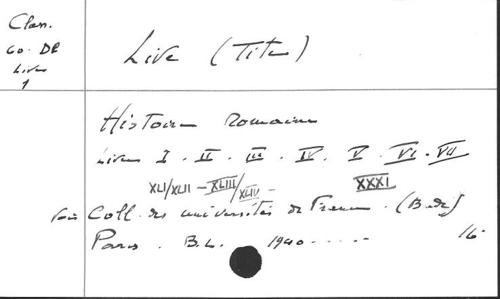 Clas.
60. DE
Live
1
Live (Tite)
Histoire Romaine
Livres I. II. III. IV. V. VI. VII
XLI/XLII - XLIII/XLIV - XXXI
Coll. des universités de France. (Budé)
Paris. B.L. 1940 ......
16.